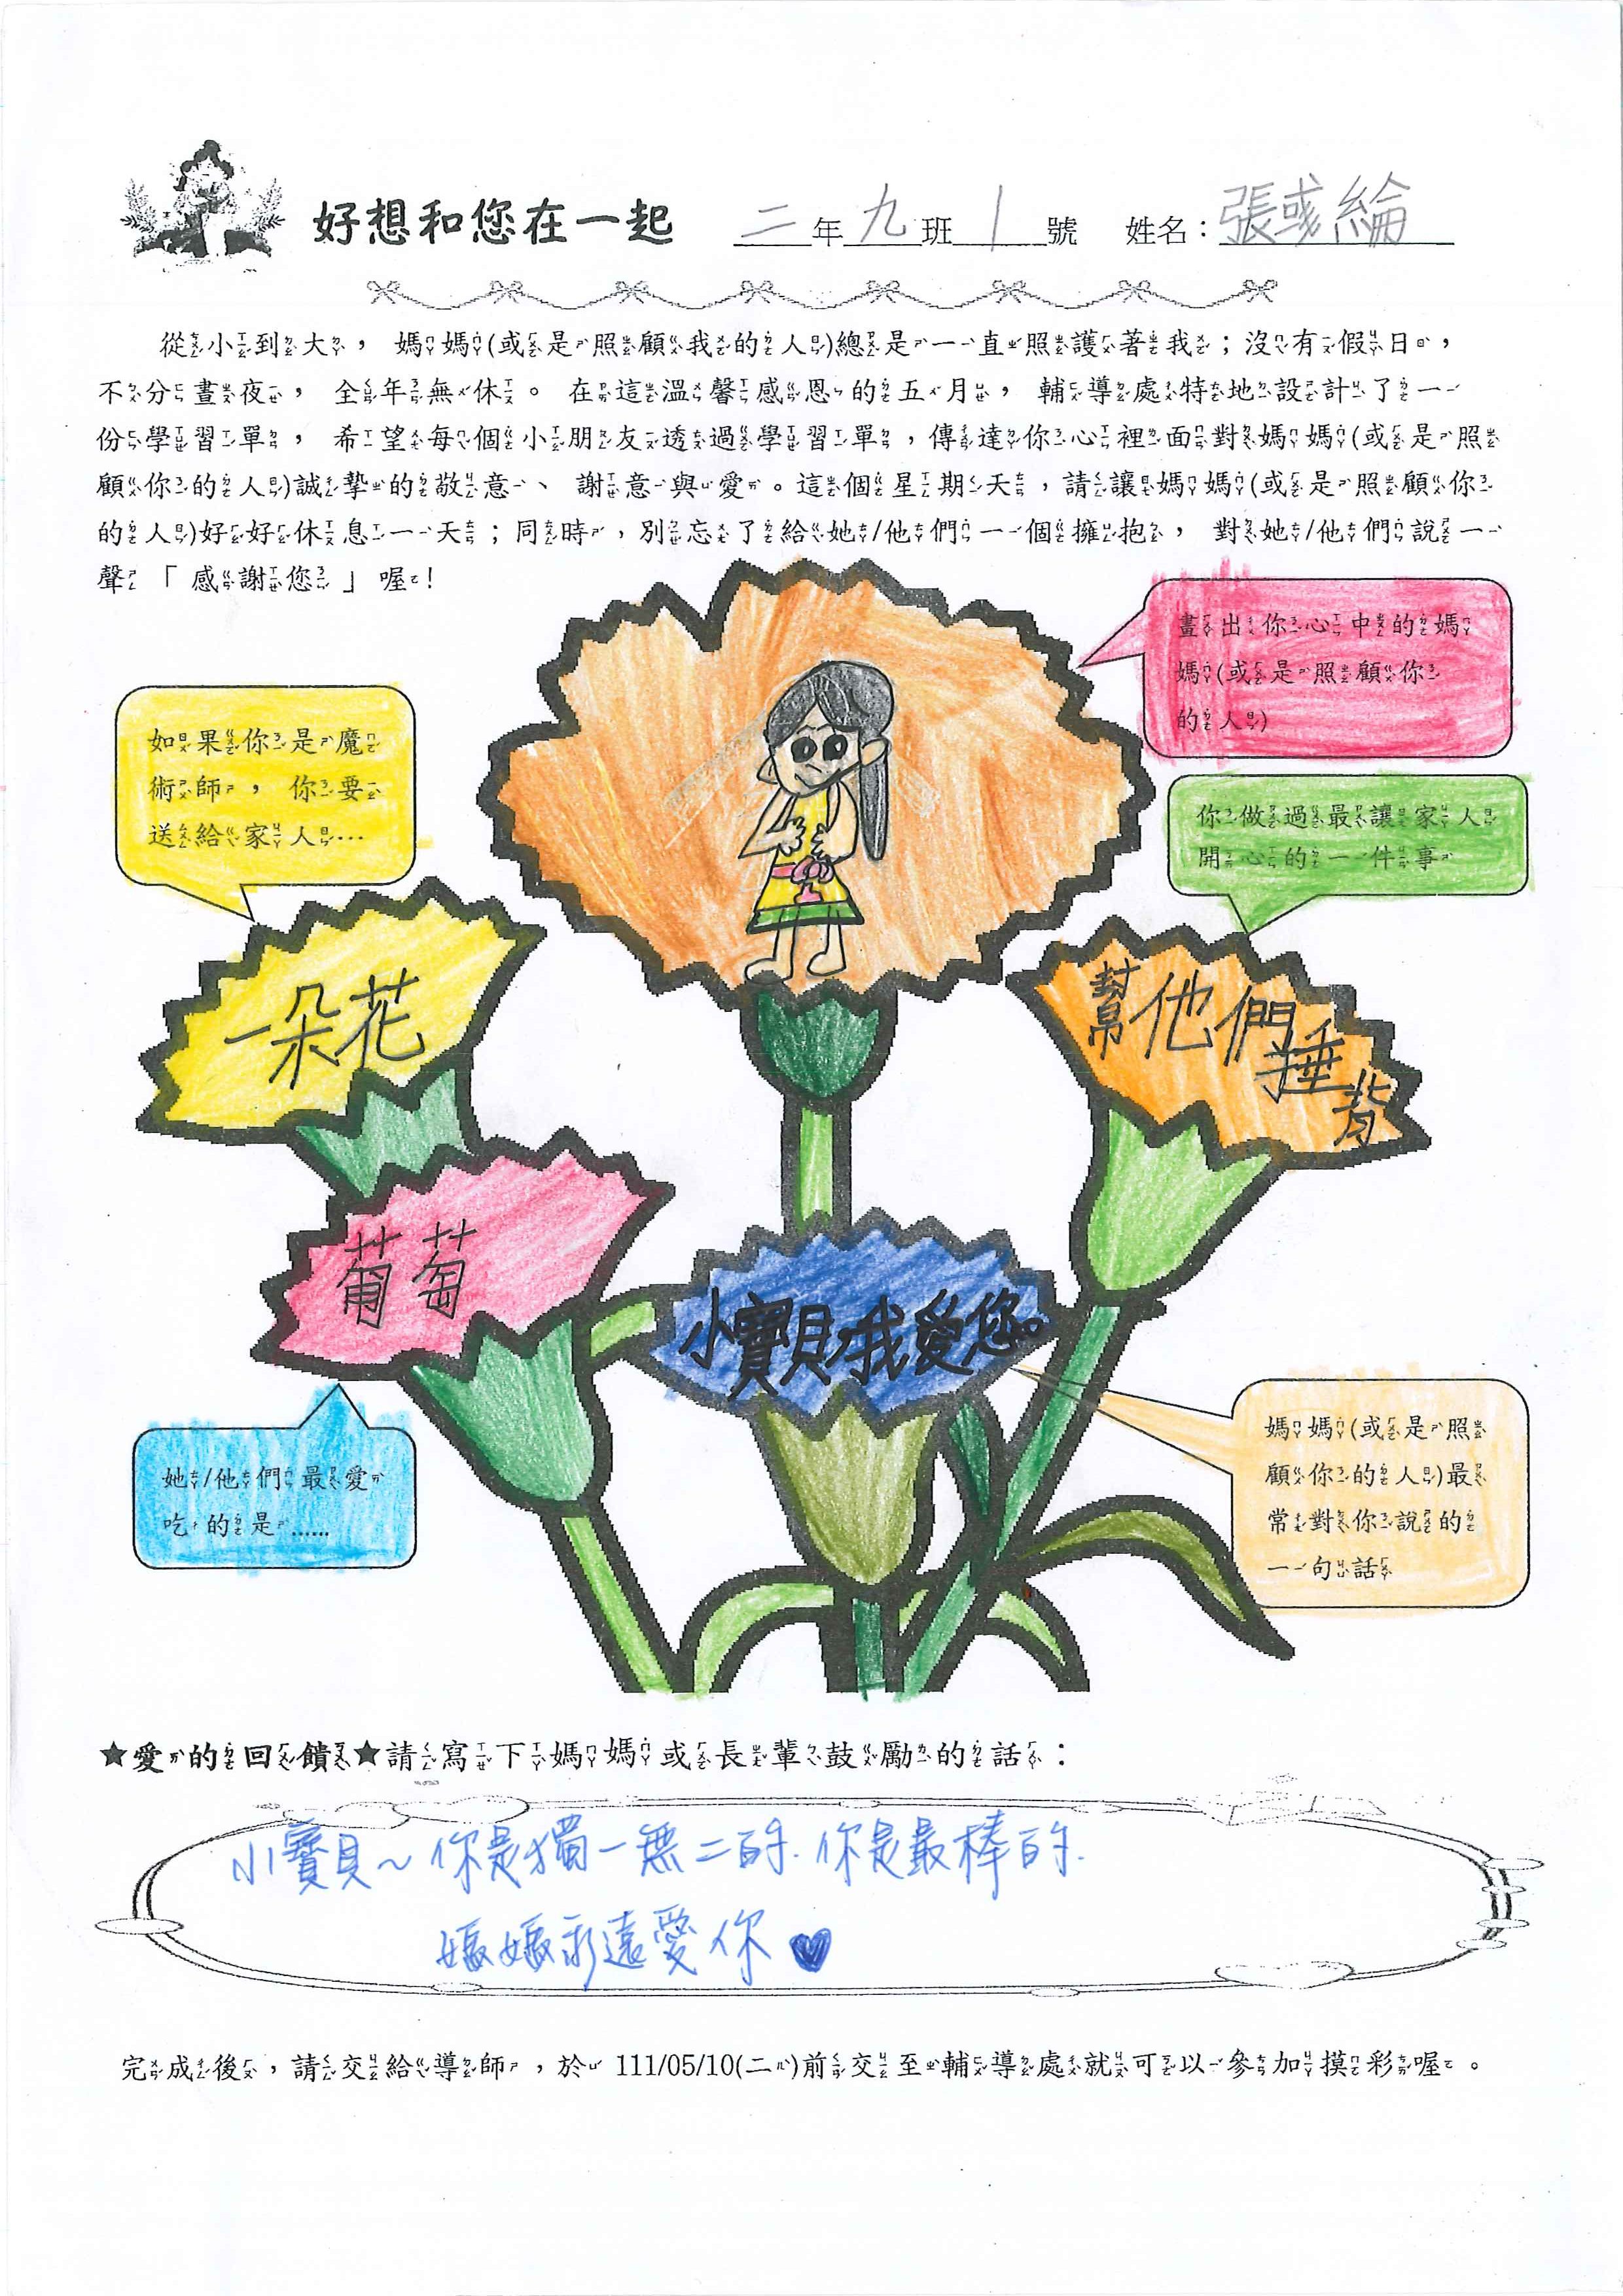 好想和您在一起 二年九班1號 姓名：張彧綸
從小到大，媽媽(或是照顧我的人)總是一直照護著我；沒有假日，
不分晝夜，全年無休。在這溫馨感恩的五月，輔導處特地設計了一
份學習單，希望每個小朋友透過學習單，傳達你心裡面對媽媽(或是照
顧你的人)誠摯的敬意、謝意與愛。這個星期天，請讓媽媽(或是照顧你
的人)好好休息一天；同時，別忘了給她/他們一個擁抱，對她/他們說一
聲「感謝您」喔！
畫出你心中的媽
媽(或是照顧你
的人)
如果你是魔
術師，你要
送給家人…
你做過最讓家人
開心的一件事
一朵花
幫他們捶背
葡萄
小寶貝我愛您。
她/他們最愛
吃的是……
媽媽(或是照
顧你的人)最
常對你說的
一句話
★愛的回饋★請寫下媽媽或長輩鼓勵的話：
小寶貝~你是獨一無二的.你是最棒的.
媽媽永遠愛你♥
完成後，請交給導師，於 111/05/10(二)前交至輔導處就可以參加摸彩喔。